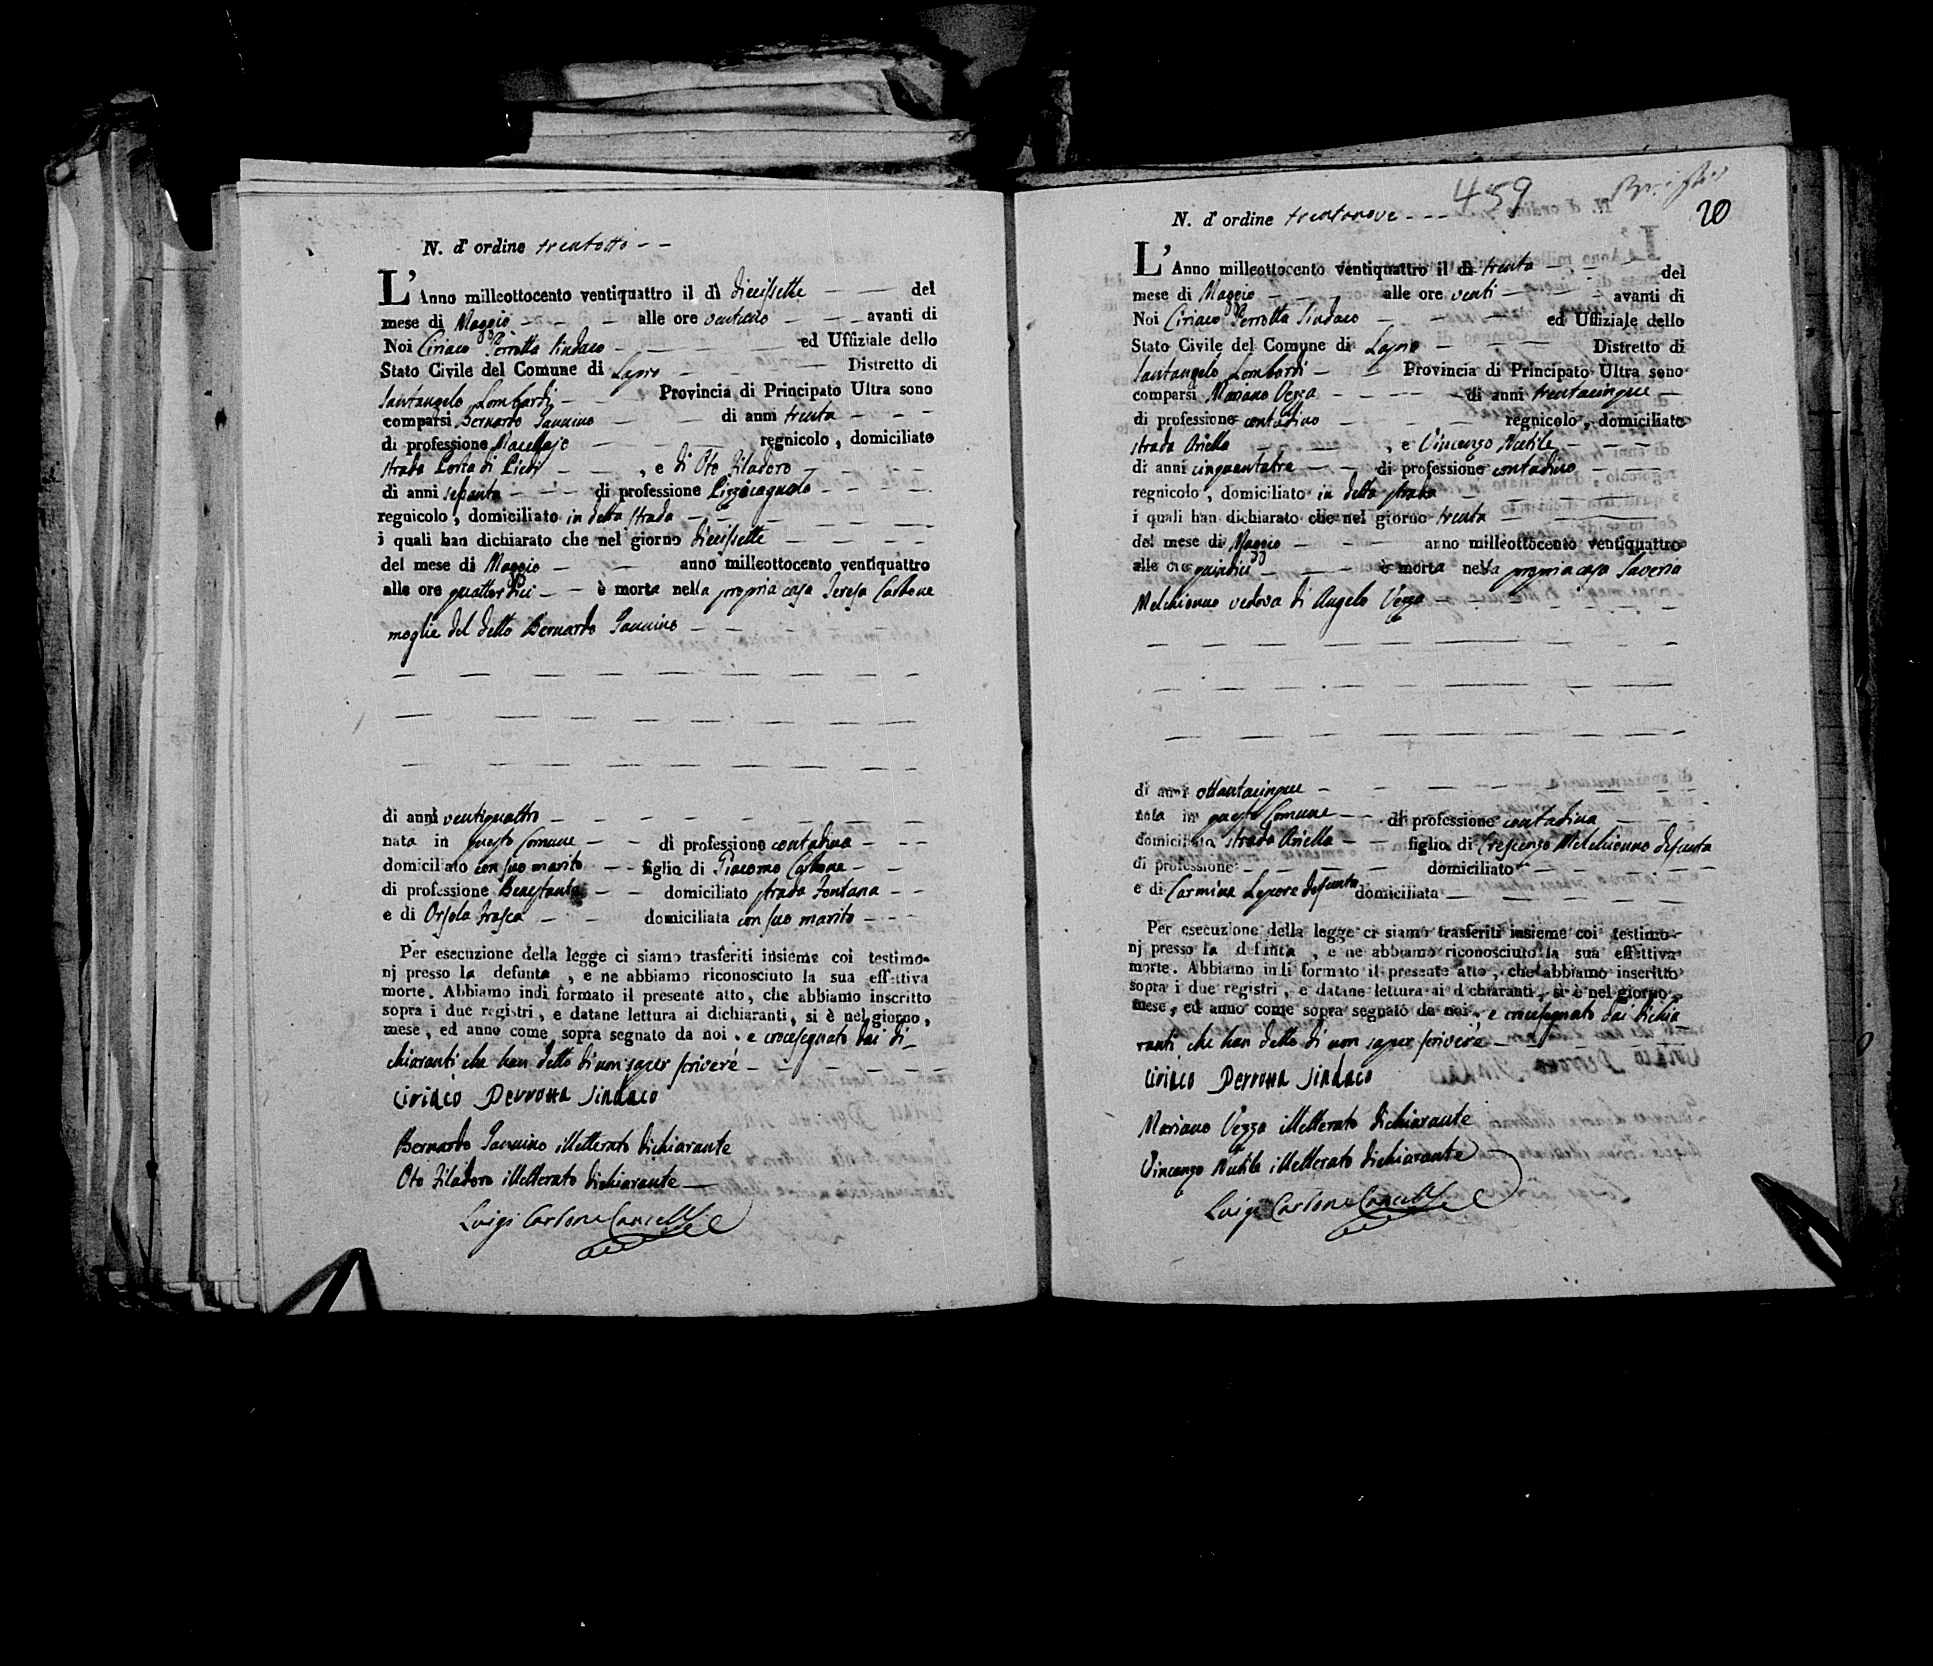 N. d'ordine trentotto
L'Anno milleottocento ventiquattro il dì diecissette del
mese di Maggio alle ore ventuno avanti di
Noi Ciriaco Perrotta Sindaco ed Uffiziale dello
Stato Civile del Comune di Distretto di
Santangelo Lombardi Provincia di Principato Ultra sono
comparsi Bernardo di anni trenta
di professione Macellajo regnicolo, domiciliato
strada Porta di Piedi, e di Oto Filadoro
di anni di professione
regnicolo, domiciliato in detta strada
i quali han dichiarato che nel giorno diecissette
del mese di Maggio anno milleottocento ventiquattro
alle ore quattordici è morta nella propria casa Teresa Carbone
moglie del detto Bernardo
di anni ventiquattro
nata in questo Comune di professione contadina
domiciliato con suo marito figlia di Giacomo Carbone
di professione Benestante domiciliato strada Fontana
e di Orsola Frasca domiciliata con suo marito
Per esecuzione della legge ci siamo trasferiti insieme coi testimo-
nj presso la defunta, e ne abbiamo riconosciuto la sua effettiva
morte. Abbiamo indi formato il presente atto, che abbiamo inscritto
sopra i due registri, e datane lettura ai dichiaranti, si è nel giorno,
mese, ed anno come sopra segnato da noi, e crocesegnato dai di-
chiaranti che han detto di non saper scrivere
Ciriaco Perrotta Sindaco
Bernardo illetterato dichiarante
Oto Filadoro illetterato dichiarante
Luigi Carbone Cancell
459
20
N. d'ordine trentanove
L'Anno milleottocento ventiquattro il dì trenta del
mese di Maggio alle ore venti avanti di
Noi Ciriaco Perrotta Sindaco ed Uffiziale dello
Stato Civile del Comune di Distretto di
Santangelo Lombardi Provincia di Principato Ultra sono
comparsi Mariano Vezza di anni trentacinque
di professione contadino regnicolo, domiciliato
strada Ariella, e Vincenzo Nutile
di anni cinquantatre di professione contadino
regnicolo, domiciliato in detta strada
i quali han dichiarato che nel giorno trenta
del mese di Maggio anno milleottocento ventiquattro
alle ore quindici è morta nella propria casa Saveria
Melchionno vedova di Angelo Vezza
di anni ottantacinque
nata in questo Comune di professione contadina
domiciliata strada Ariella figlia di Crescenzo Melchionno defunto
di professione domiciliato
e di Carmina Lepore defunta domiciliata
Per esecuzione della legge ci siamo trasferiti insieme coi testimo-
nj presso la defunta, e ne abbiamo riconosciuto la sua effettiva
morte. Abbiamo indi formato il presente atto, che abbiamo inscritto
sopra i due registri, e datane lettura ai dichiaranti, si è nel giorno,
mese, ed anno come sopra segnato da noi, e crocesegnato dai dichia-
ranti che han detto di non saper scrivere
Ciriaco Perrotta Sindaco
Mariano Vezza illetterato dichiarante
Vincenzo Nutile illetterato dichiarante
Luigi Carbone Cancell